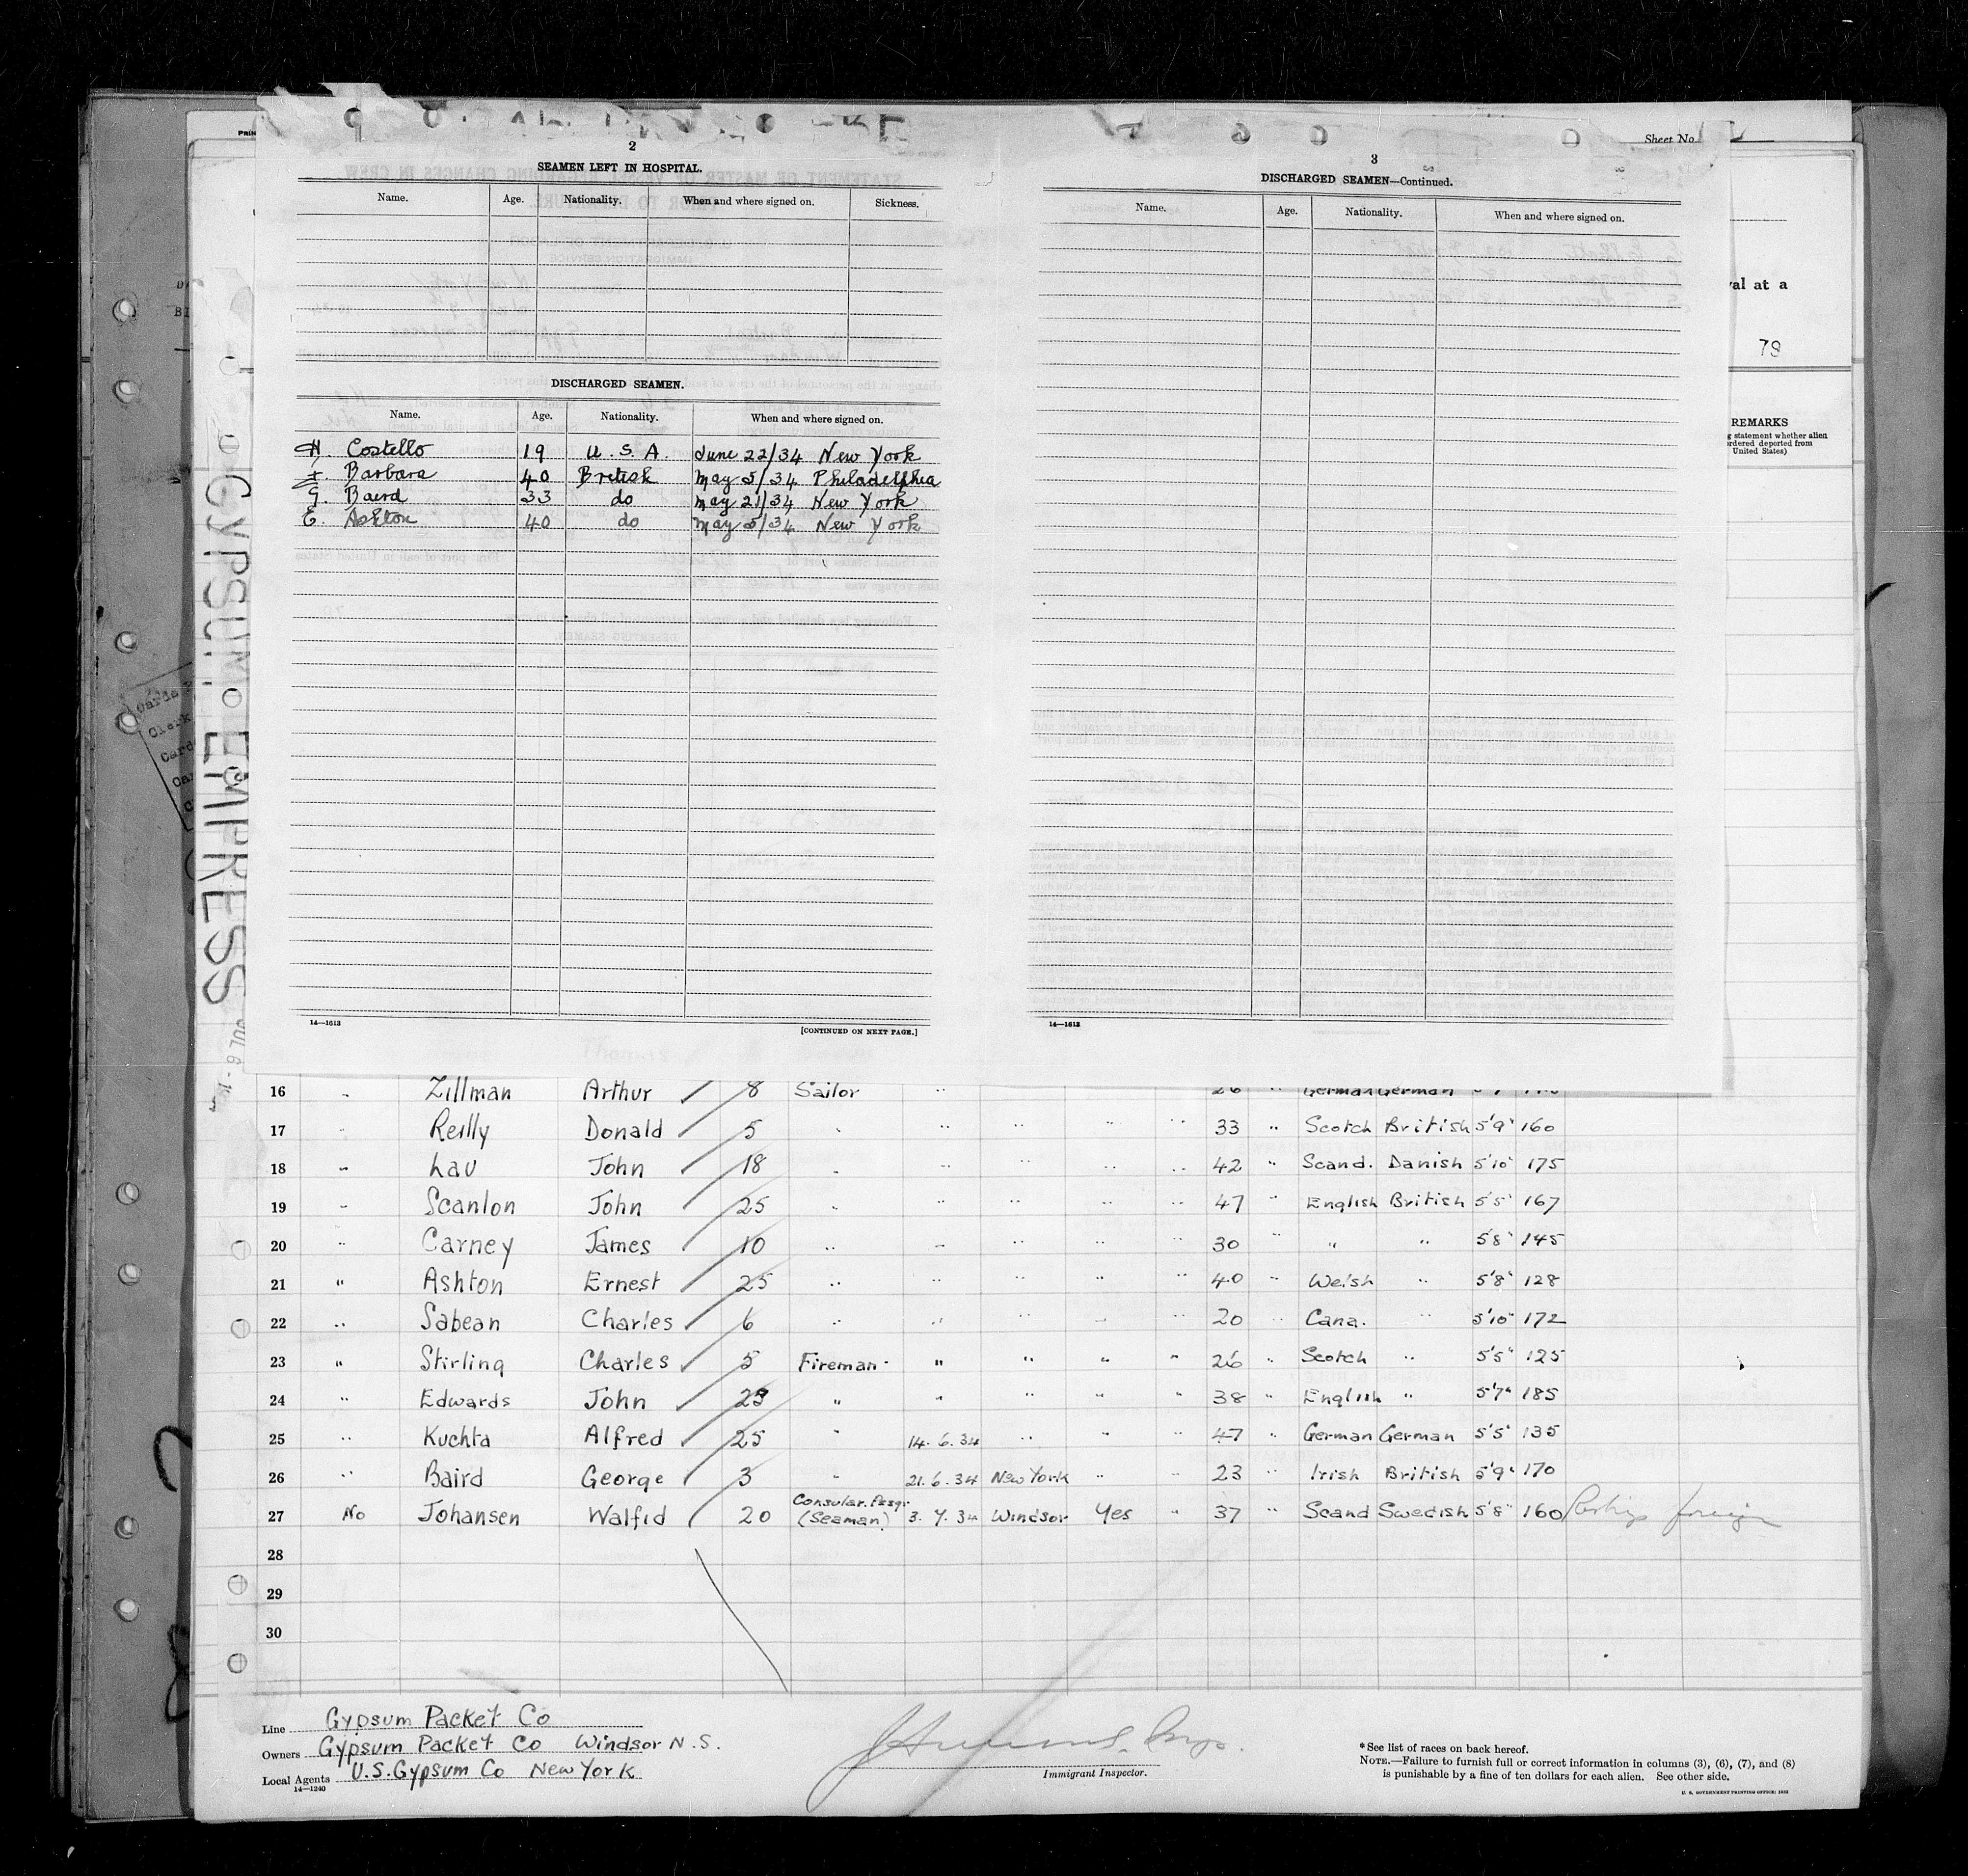 Sheet No.
2
SEAMEN LEFT IN HOSPITAL.
Name. Age. Nationality. When and where signed on. Sickness.
DISCHARGED SEAMEN.
Name. Age. Nationality. When and where signed on.
H. Costello 19 U.S.A. June 22/34 New York
Barbara 40 British May 5/34 Philadelphia
G. Baird 33 do May 21/34 New York
E. Ashton 40 do May 5/34 New York
14—1613
[CONTINUED ON NEXT PAGE.]
3
DISCHARGED SEAMEN—Continued.
Name. Age. Nationality. When and where signed on.
14—1613
val at a
78
REMARKS
g statement whether alien
rdered deported from
United States)
GYPSUM EMPRESS
16 " Zillman Arthur 8 Sailor " 26 " German German
17 " Reilly Donald 5 " " " " " 33 " Scotch British 5'9" 160
18 " Lau John 18 " " " " " 42 " Scand. Danish 5'10" 175
19 " Scanlon John 25 " " " " " 47 " English British 5'5" 167
20 " Carney James 10 " " " " " 30 " " " 5'8" 145
21 " Ashton Ernest 25 " " " " " 40 " Welsh " 5'8" 128
22 " Sabean Charles 6 " " " " " 20 " Cana. " 5'10" 172
23 " Stirling Charles 5 Fireman " " " " 26 " Scotch " 5'5" 125
24 " Edwards John 23 " " " " " 38 " English " 5'7" 185
25 " Kuchta Alfred 25 " 14.6.34 " " " 47 " German German 5'5" 135
26 " Baird George 3 " 21.6.34 New York " " 23 " Irish British 5'9" 170
27 No Johansen Walfid 20 Consular. Passgr. (Seaman) 3.7.34 Windsor Yes " 37 " Scand Swedish 5'8" 160 foreign
28
29
30
Line Gypsum Packet Co
Owners Gypsum Packet Co Windsor N.S.
Local Agents U.S. Gypsum Co New York
14—1240
Immigrant Inspector.
*See list of races on back hereof.
NOTE.—Failure to furnish full or correct information in columns (3), (6), (7), and (8)
is punishable by a fine of ten dollars for each alien. See other side.
U. S. GOVERNMENT PRINTING OFFICE: 1932